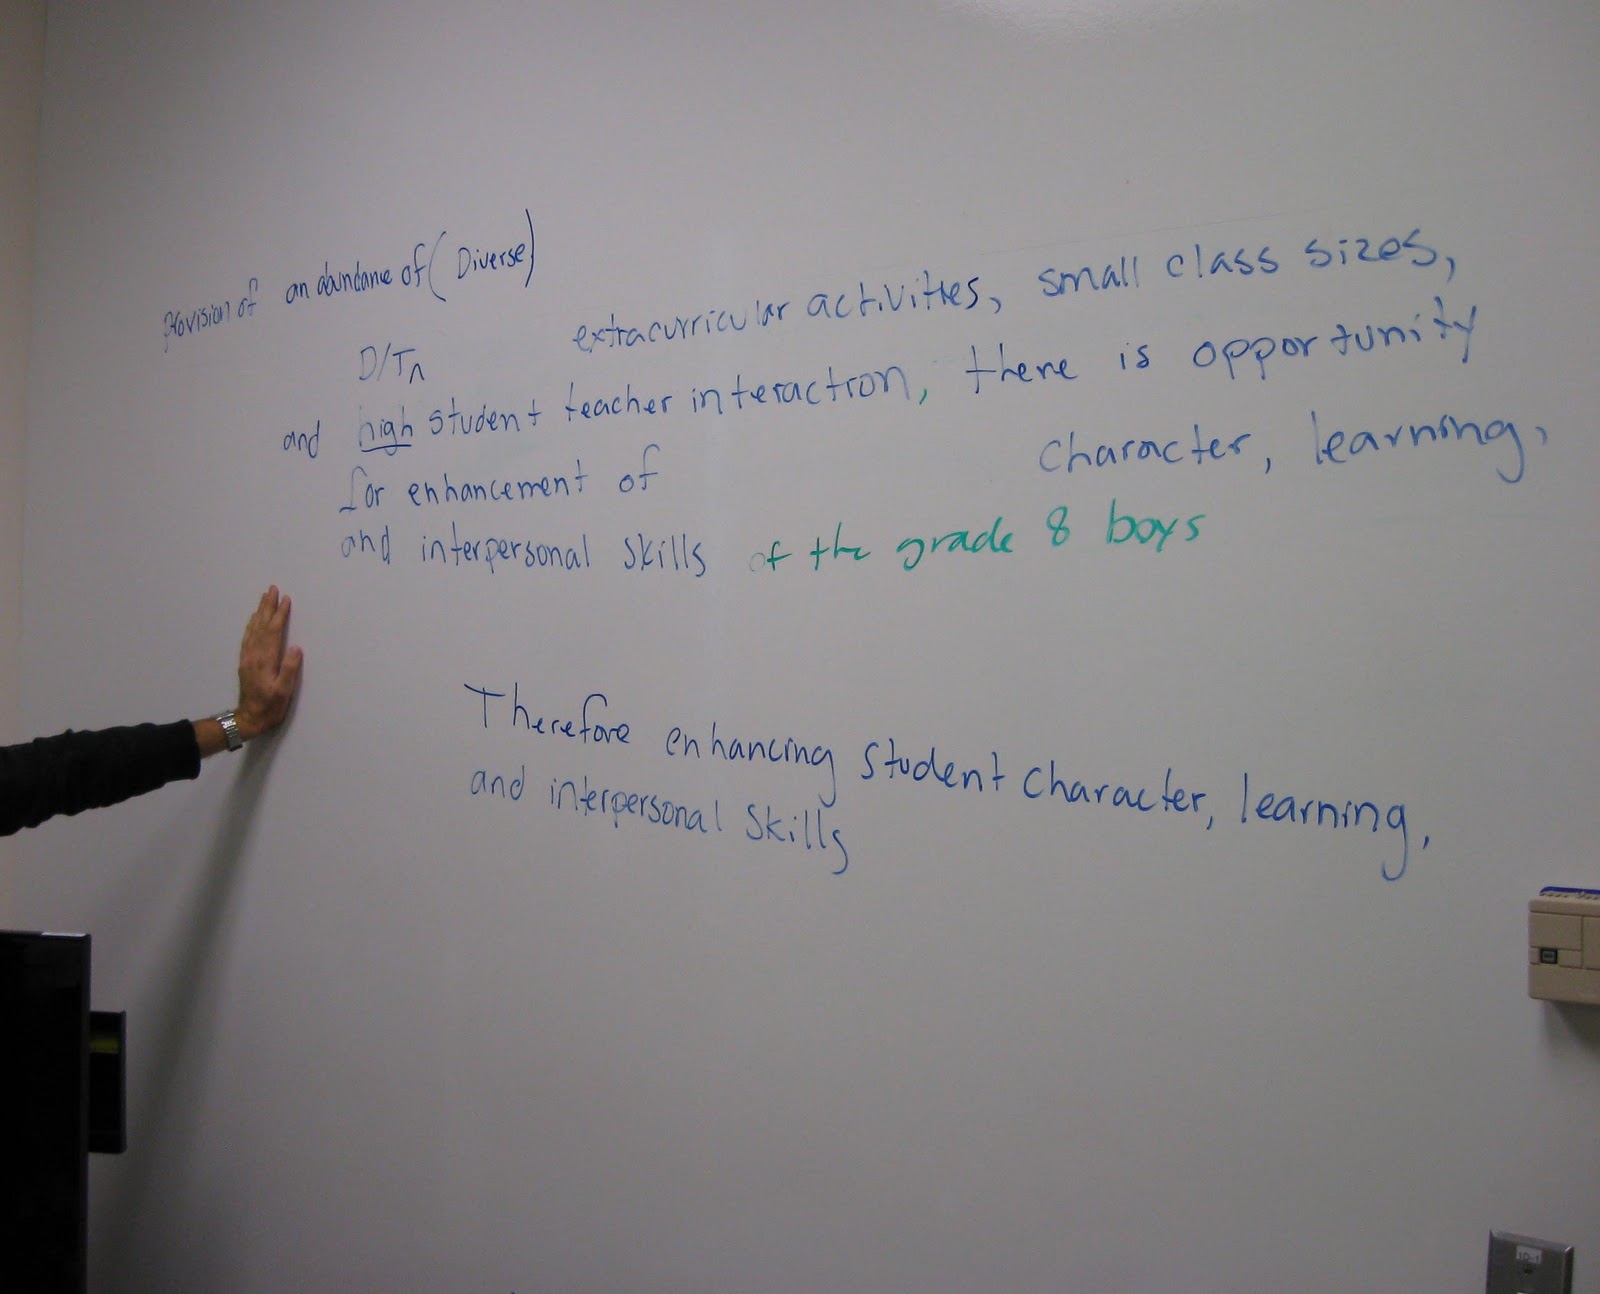 provision of an abundance of (Diverse)
extracurricular activities, small class sizes,
and high student teacher interaction, there is opportunity
for enhancement of character, learning,
and interpersonal skills of the grade 8 boys
Therefore enhancing student character, learning,
and interpersonal skills
10-1